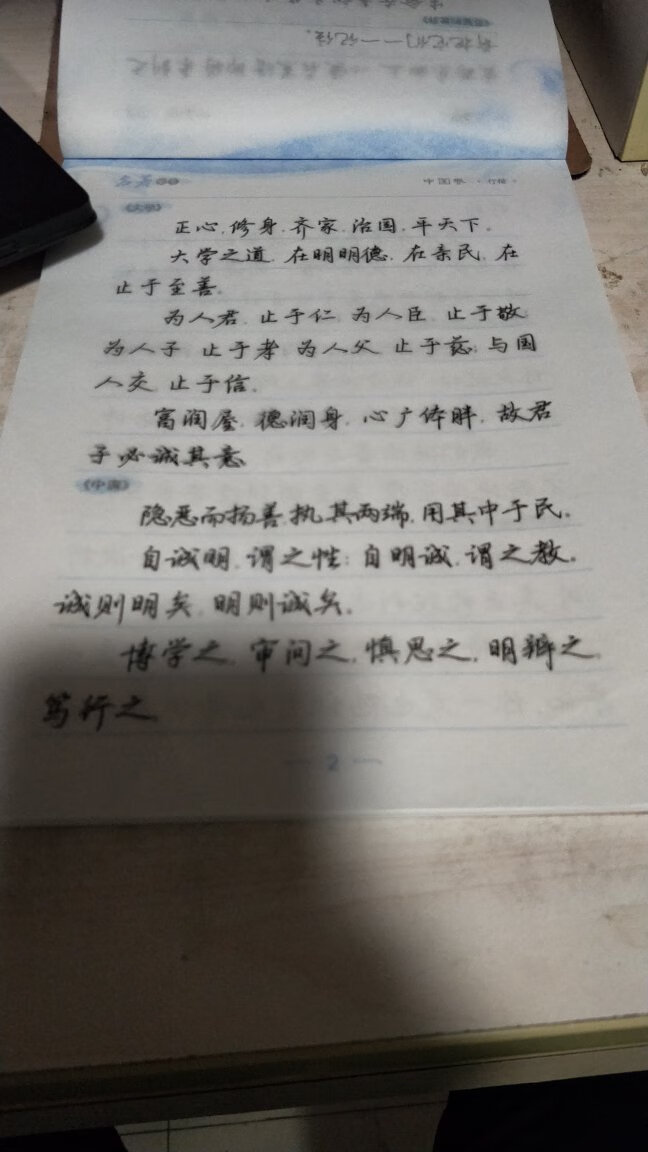 有把它们一一记住。
名著
中国卷·行楷·
《大学》
正心,修身,齐家,治国,平天下。
大学之道,在明明德,在亲民,在
止于至善。
为人君,止于仁;为人臣,止于敬;
为人子,止于孝;为人父,止于慈;与国
人交,止于信。
富润屋,德润身,心广体胖,故君
子必诚其意。
《中庸》
隐恶而扬善,执其两端,用其中于民。
自诚明,谓之性;自明诚,谓之教。
诚则明矣,明则诚矣。
博学之,审问之,慎思之,明辨之,
笃行之。
— 2 —